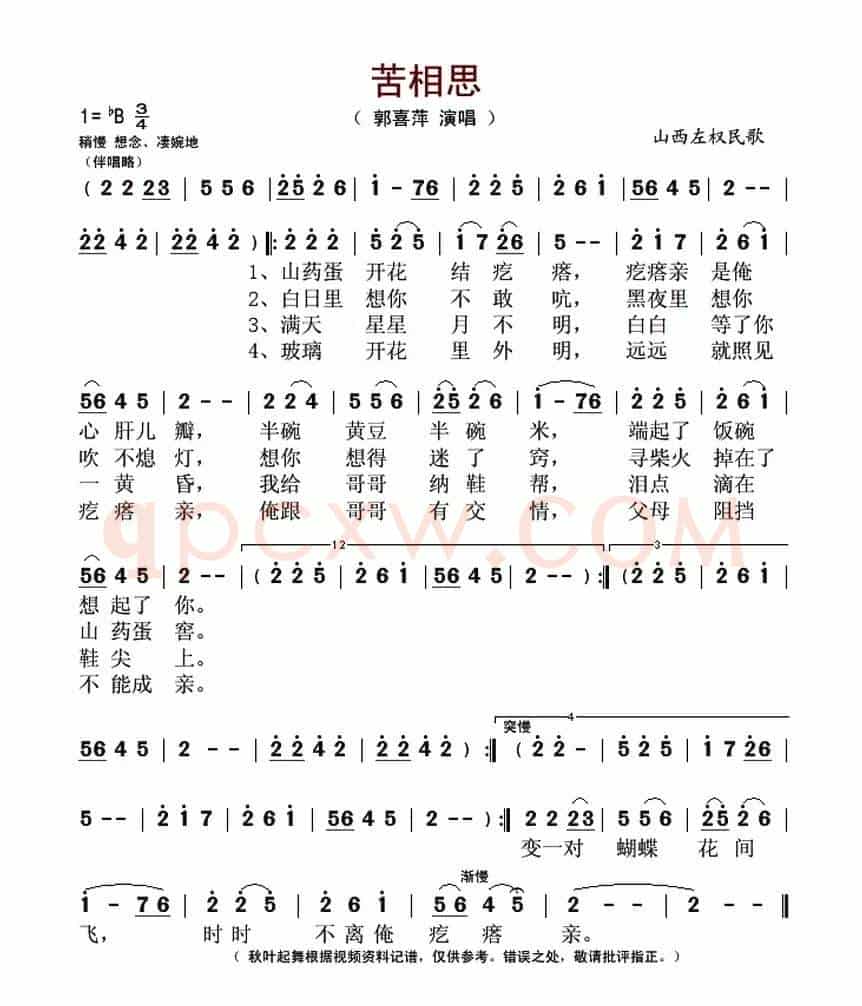 苦相思
1=♭B 3/4
（ 郭喜萍 演唱 ）
稍慢 想念、凄婉地
山西左权民歌
（伴唱略）
( 2 2 23 | 5 5 6 | 25 2 6 | 1 - 76 | 2 2 5 | 2 6 1 | 56 4 5 | 2 - - |
22 4 2 | 22 4 2 ) ‖: 2 2 2 | 5 2 5 | 1 7 26 | 5 - - | 2 1 7 | 2 6 1 |
1、山药蛋 开花 结 疙 瘩， 疙瘩亲 是俺
2、白日里 想你 不 敢 吭， 黑夜里 想你
3、满天 星星 月 不 明， 白白 等了你
4、玻璃 开花 里 外 明， 远远 就照见
56 4 5 | 2 - - | 2 2 4 | 5 5 6 | 25 2 6 | 1 - 76 | 2 2 5 | 2 6 1 |
心 肝儿 瓣， 半碗 黄豆 半 碗 米， 端起了 饭碗
吹 不熄 灯， 想你 想得 迷 了 窍， 寻柴火 掉在了
一 黄 昏， 我给 哥哥 纳 鞋 帮， 泪点 滴在
疙 瘩 亲， 俺跟 哥哥 有 交 情， 父母 阻挡
qpcxw.COM
12
3
56 4 5 | 2 - - | ( 2 2 5 | 2 6 1 | 56 4 5 | 2 - - ) :‖ ( 2 2 5 | 2 6 1 |
想 起了 你。
山 药蛋 窖。
鞋 尖 上。
不 能成 亲。
4
突慢
56 4 5 | 2 - - | 22 4 2 | 22 4 2 ) :‖ ( 2 2 - | 5 2 5 | 1 7 26 |
5 - - | 2 1 7 | 2 6 1 | 56 4 5 | 2 - - ) :‖ 2 2 23 | 5 5 6 | 25 2 6 |
变一对 蝴蝶 花 间
渐慢
1 - 76 | 2 2 5 | 2 6 1 | 56 4 5 | 2 - | 2 - ‖
飞， 时时 不离俺 疙 瘩 亲。
（ 秋叶起舞根据视频资料记谱，仅供参考。错误之处，敬请批评指正。）